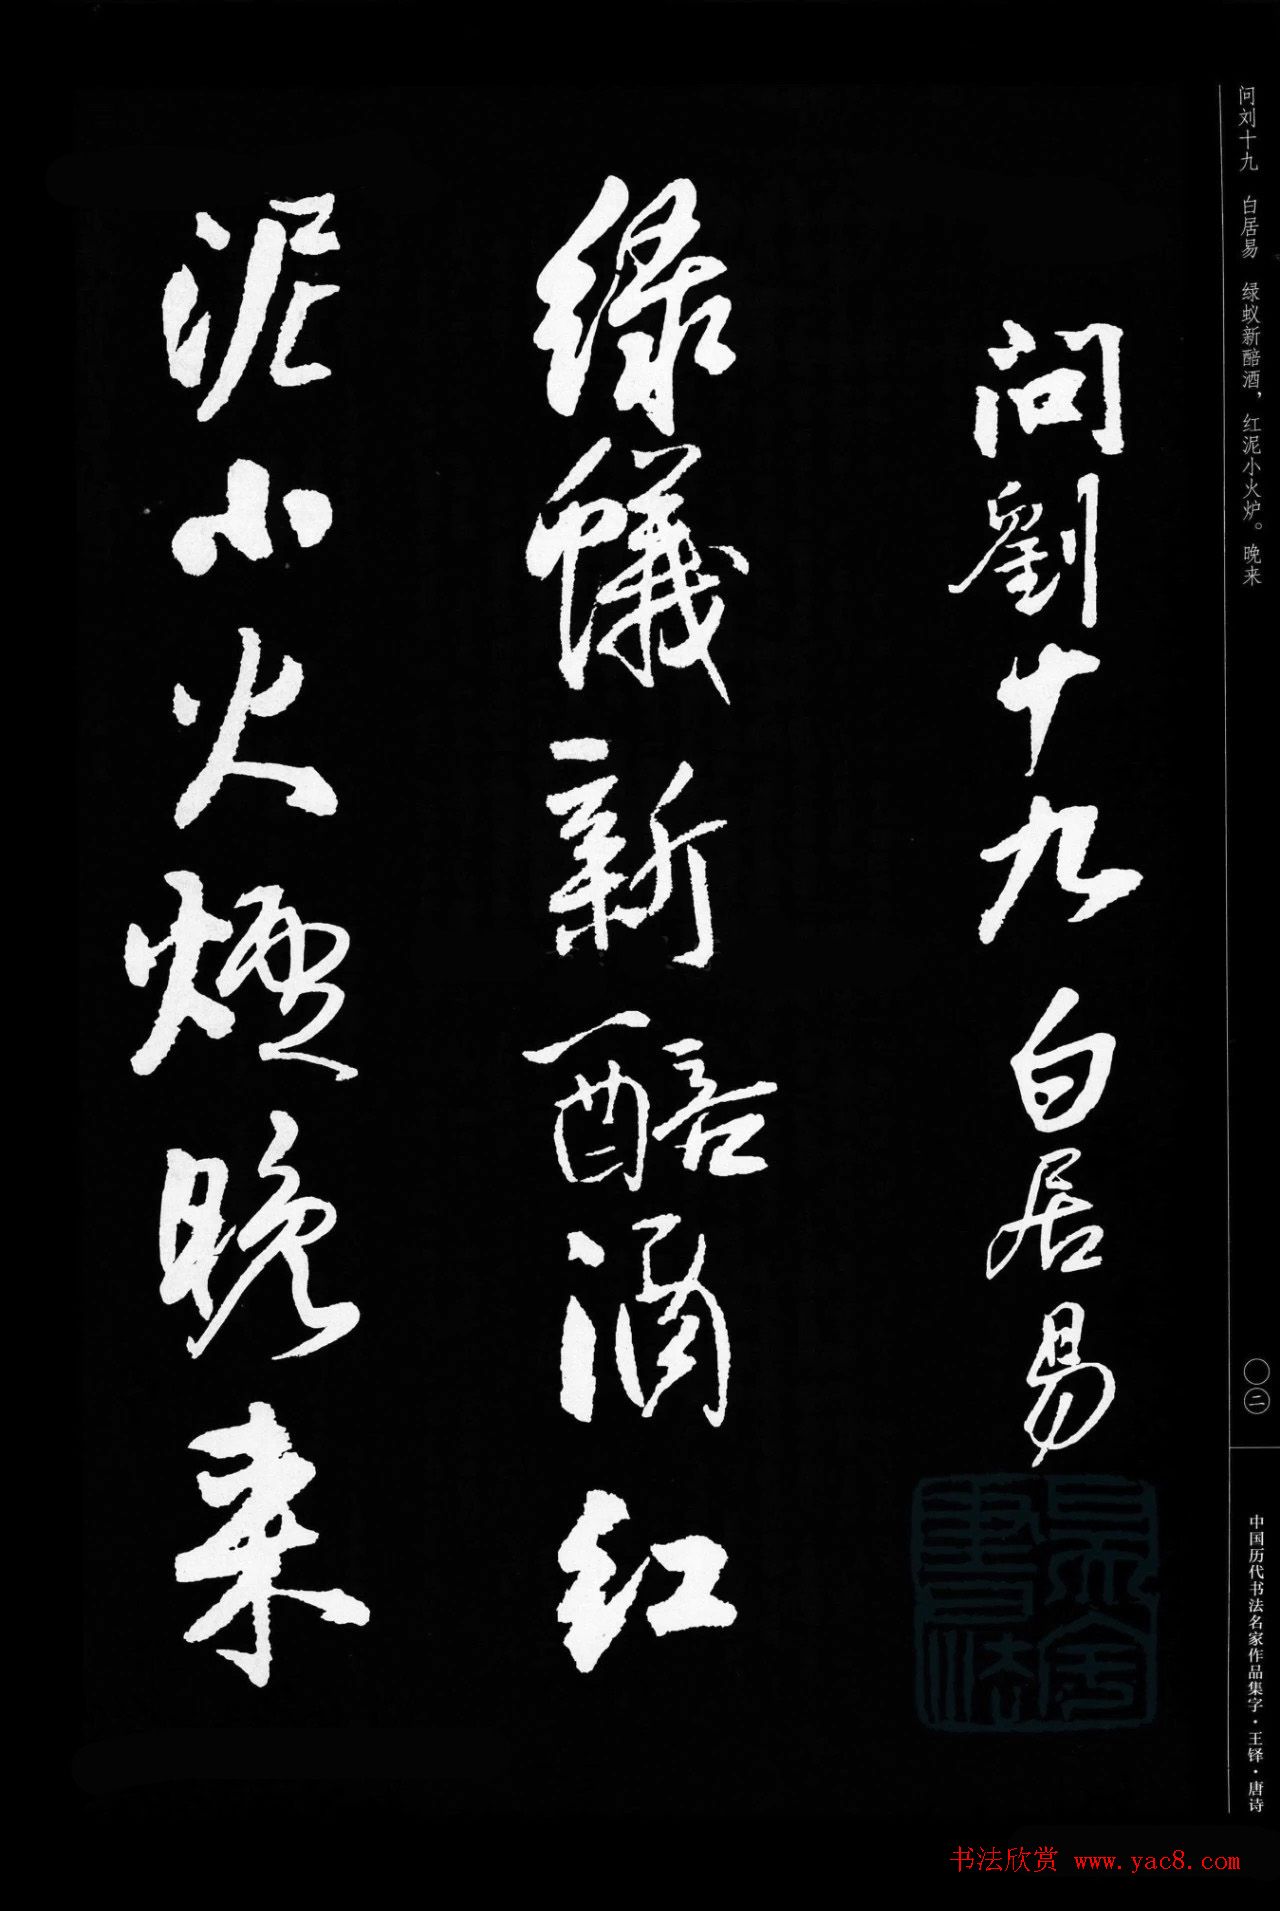 问刘十九　白居易　绿蚁新醅酒，红泥小火炉。晚来
問劉十九白居易
緑蟻新醅酒红
泥小火爐晚来
〇二
中国历代书法名家作品集字·王铎·唐诗
书法欣赏 www.yac8.com